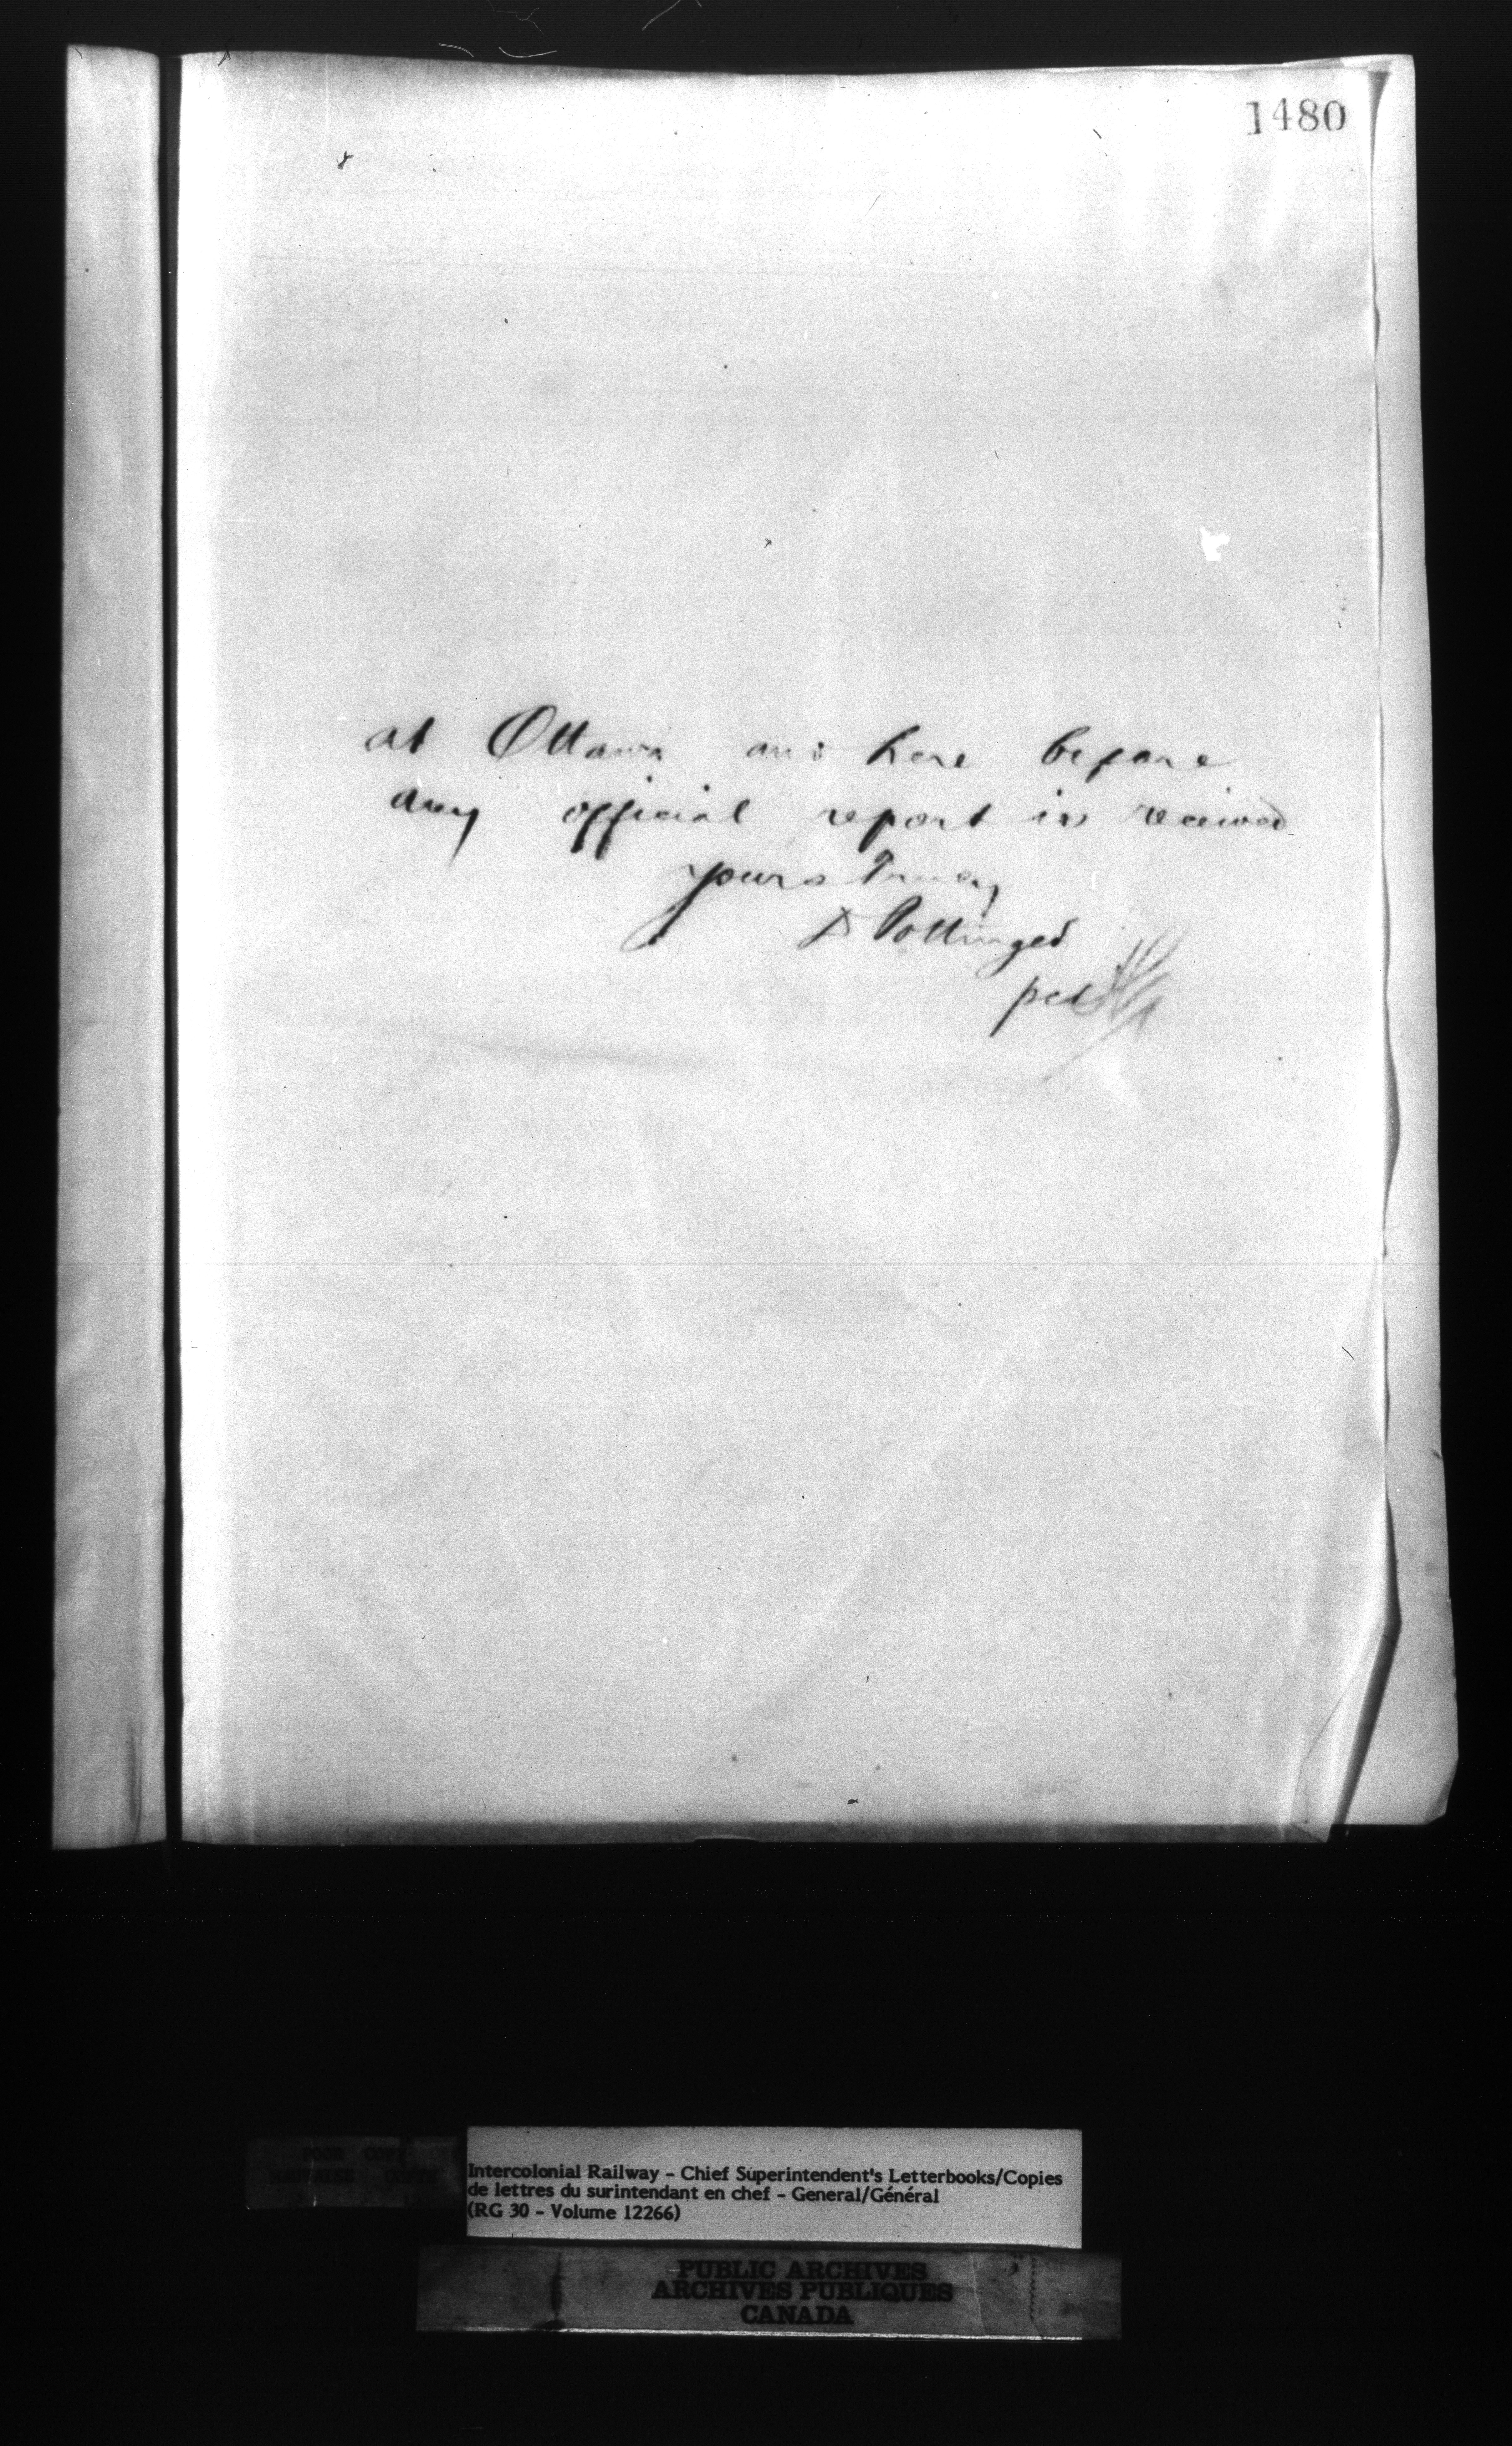 1480
at Ottawa and here before
any official report is received
yours truly
D Pottinger
per
POOR COPY
MAUVAISE COPIE
Intercolonial Railway - Chief Superintendent's Letterbooks/Copies
de lettres du surintendant en chef - General/Général
(RG 30 - Volume 12266)
PUBLIC ARCHIVES
ARCHIVES PUBLIQUES
CANADA